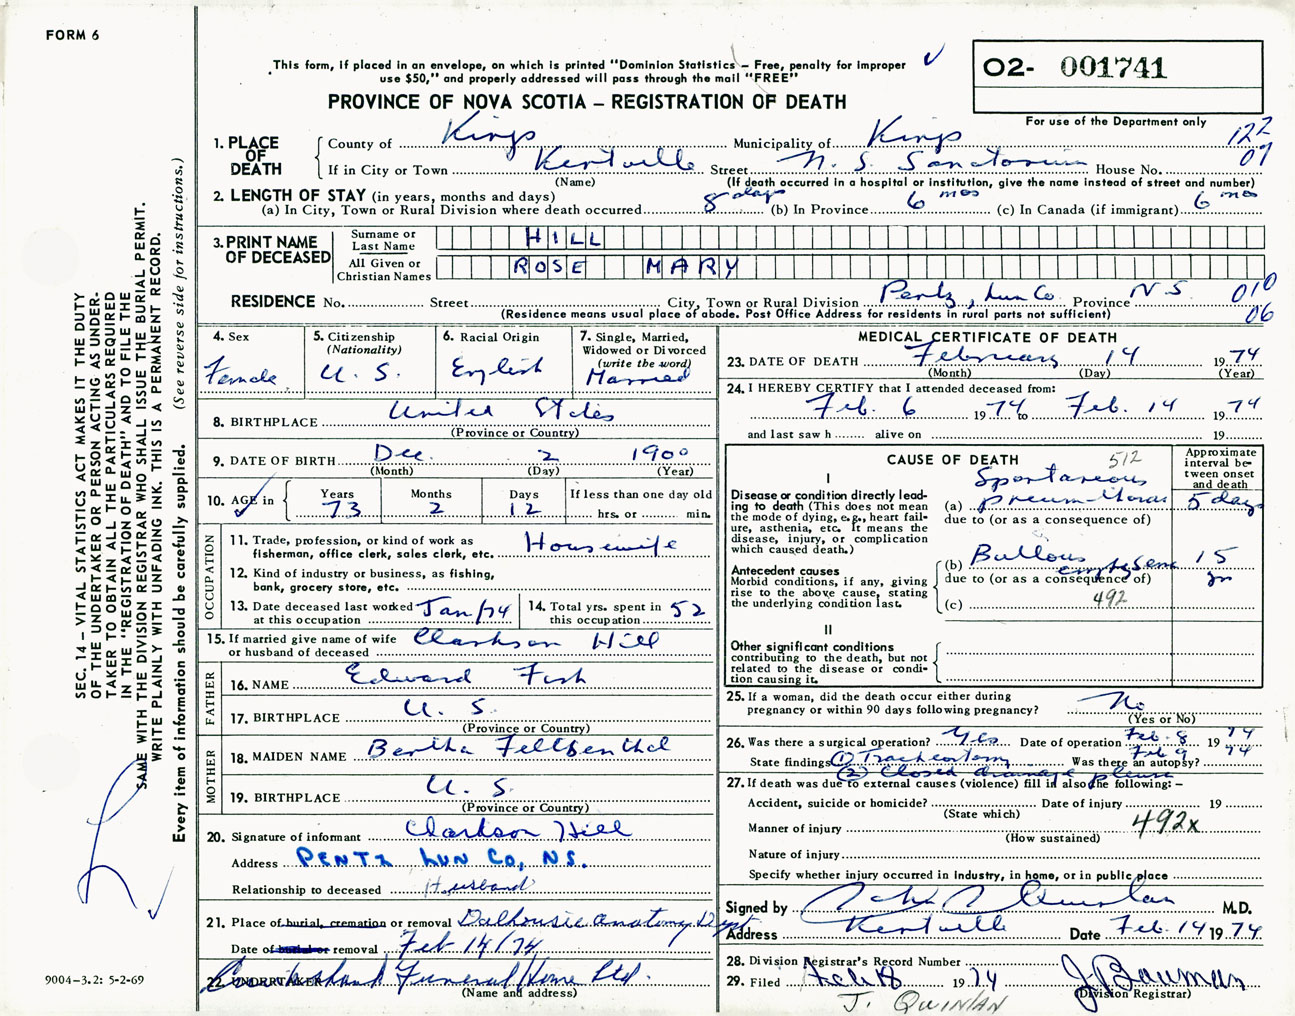 FORM 6
This form, if placed in an envelope, on which is printed "Dominion Statistics – Free, penalty for improper
use $50," and properly addressed will pass through the mail "FREE"
PROVINCE OF NOVA SCOTIA – REGISTRATION OF DEATH
O2- 001741
For use of the Department only
122
07
1. PLACE OF DEATH
County of Kings Municipality of Kings
If in City or Town Kentville Street N. S. Sanatorium House No.
(Name) (If death occurred in a hospital or institution, give the name instead of street and number)
2. LENGTH OF STAY (in years, months and days)
(a) In City, Town or Rural Division where death occurred 8 days (b) In Province 6 mos (c) In Canada (if immigrant) 6 mos
3. PRINT NAME OF DECEASED
Surname or Last Name HILL
All Given or Christian Names ROSE MARY
RESIDENCE No. Street City, Town or Rural Division Pentz, Lun Co. Province N.S. 010
(Residence means usual place of abode. Post Office Address for residents in rural parts not sufficient) 06
4. Sex Female
5. Citizenship (Nationality) U. S.
6. Racial Origin English
7. Single, Married, Widowed or Divorced (write the word) Married
8. BIRTHPLACE United States
(Province or Country)
9. DATE OF BIRTH Dec. 2 1900
(Month) (Day) (Year)
10. AGE in Years 73 Months 2 Days 12 If less than one day old
hrs. or min.
OCCUPATION
11. Trade, profession, or kind of work as fisherman, office clerk, sales clerk, etc. Housewife
12. Kind of industry or business, as fishing, bank, grocery store, etc.
13. Date deceased last worked at this occupation Jan/74
14. Total yrs. spent in this occupation 52
15. If married give name of wife or husband of deceased Clarkson Hill
FATHER
16. NAME Edward Fish
17. BIRTHPLACE U. S.
(Province or Country)
MOTHER
18. MAIDEN NAME Bertha
19. BIRTHPLACE U. S.
(Province or Country)
20. Signature of informant Clarkson Hill
Address PENTZ LUN CO, N.S.
Relationship to deceased Husband
21. Place of burial, cremation or removal Dalhousie Anatomy Dept
Date of burial or removal Feb 14/74
22. UNDERTAKER Funeral Home Ltd.
(Name and address)
MEDICAL CERTIFICATE OF DEATH
23. DATE OF DEATH February 14 1974
(Month) (Day) (Year)
24. I HEREBY CERTIFY that I attended deceased from:
Feb. 6 1974 to Feb. 14 1974
and last saw h alive on 19
CAUSE OF DEATH 512
Approximate interval between onset and death
I
Disease or condition directly leading to death (This does not mean the mode of dying, e.g., heart failure, asthenia, etc. It means the disease, injury, or complication which caused death.)
(a) Spontaneous pneumothorax 5 days
due to (or as a consequence of)
Antecedent causes
Morbid conditions, if any, giving rise to the above cause, stating the underlying condition last.
(b) Bullous emphysema 15 yrs
due to (or as a consequence of)
(c) 492
II
Other significant conditions
contributing to the death, but not related to the disease or condition causing it.
25. If a woman, did the death occur either during pregnancy or within 90 days following pregnancy? No
(Yes or No)
26. Was there a surgical operation? Yes Date of operation Feb. 8 1974
Feb 9 74
State findings (1) Tracheotomy Was there an autopsy?
(2) Closed drainage
27. If death was due to external causes (violence) fill in also the following: –
Accident, suicide or homicide? Date of injury 19
(State which)
Manner of injury 492x
(How sustained)
Nature of injury
Specify whether injury occurred in Industry, in home, or in public place
Signed by M.D.
Address Kentville Date Feb. 14 1974
28. Division Registrar's Record Number
29. Filed Feb 18 1974
(Division Registrar)
J. QUINLAN
SEC. 14 – VITAL STATISTICS ACT MAKES IT THE DUTY
OF THE UNDERTAKER OR PERSON ACTING AS UNDER-
TAKER TO OBTAIN ALL THE PARTICULARS REQUIRED
IN THE "REGISTRATION OF DEATH" AND TO FILE THE
SAME WITH THE DIVISION REGISTRAR WHO SHALL ISSUE THE BURIAL PERMIT.
WRITE PLAINLY WITH UNFADING INK. THIS IS A PERMANENT RECORD.
Every item of information should be carefully supplied. (See reverse side for instructions.)
9004–3.2: 5-2-69